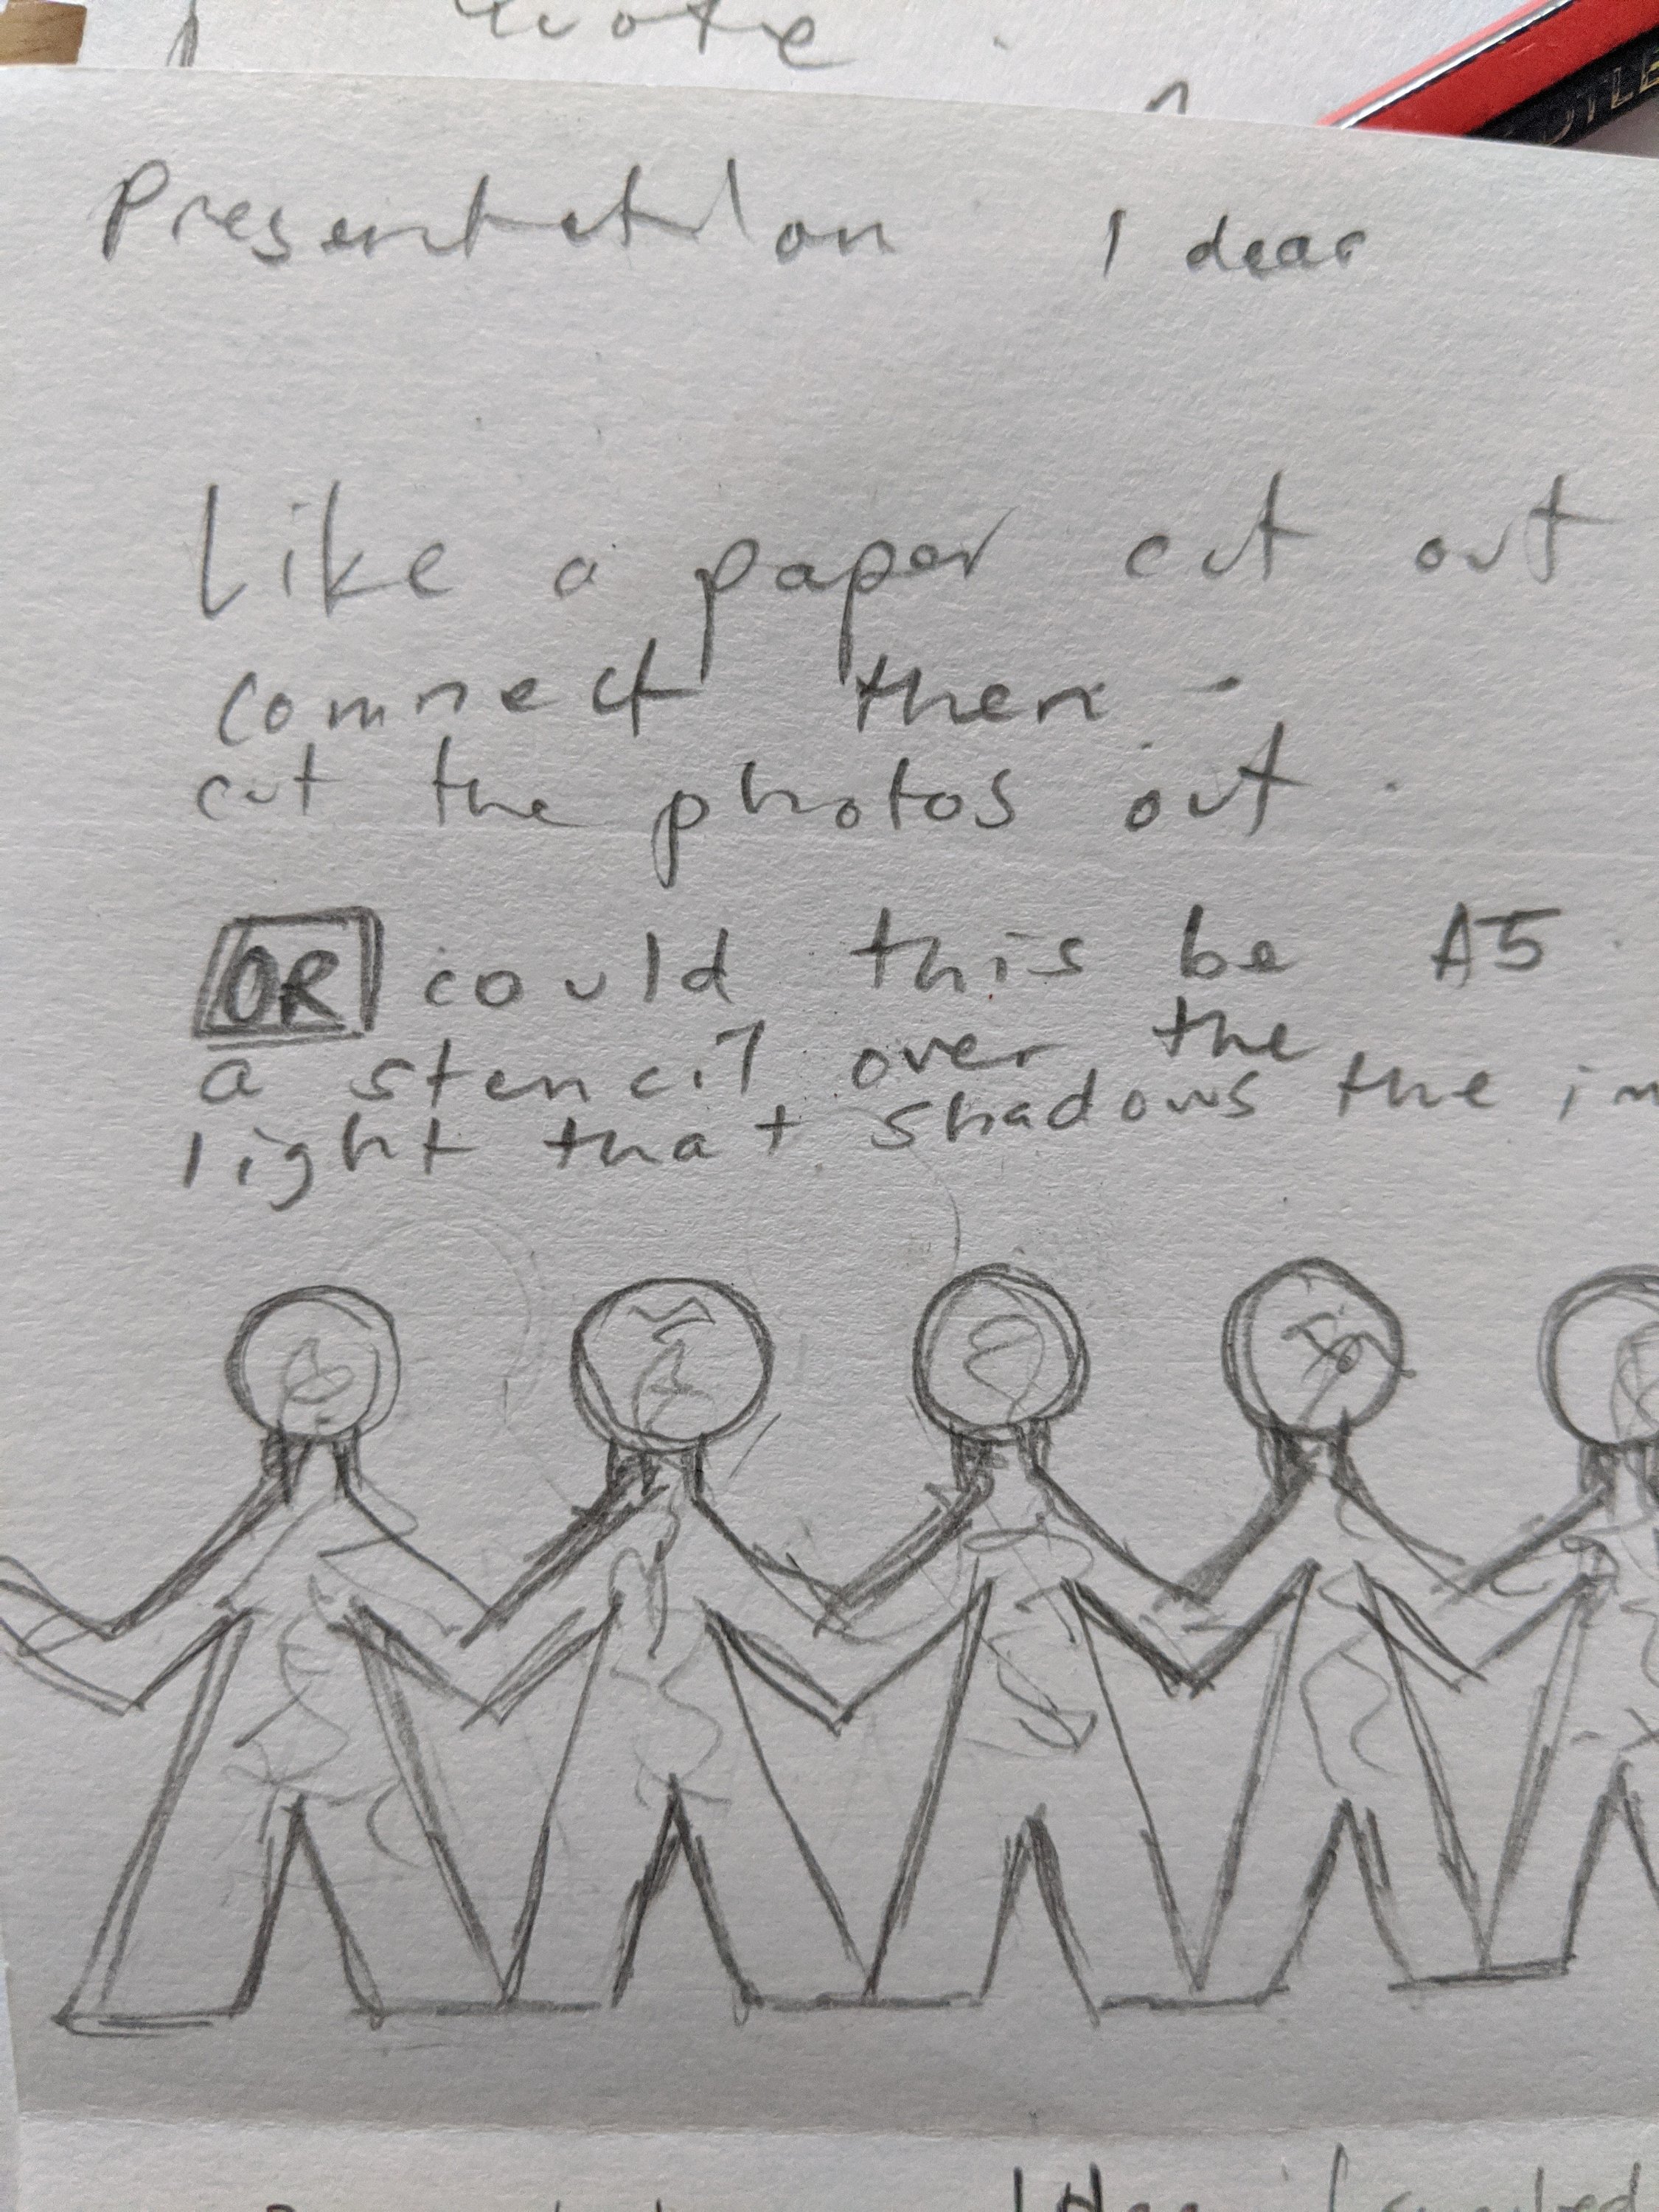 wrote.
Presentation Idear
Like a paper cut out
connect them -
cut the photos out.
OR could this be A5.
a stencil over the
light that shadows the